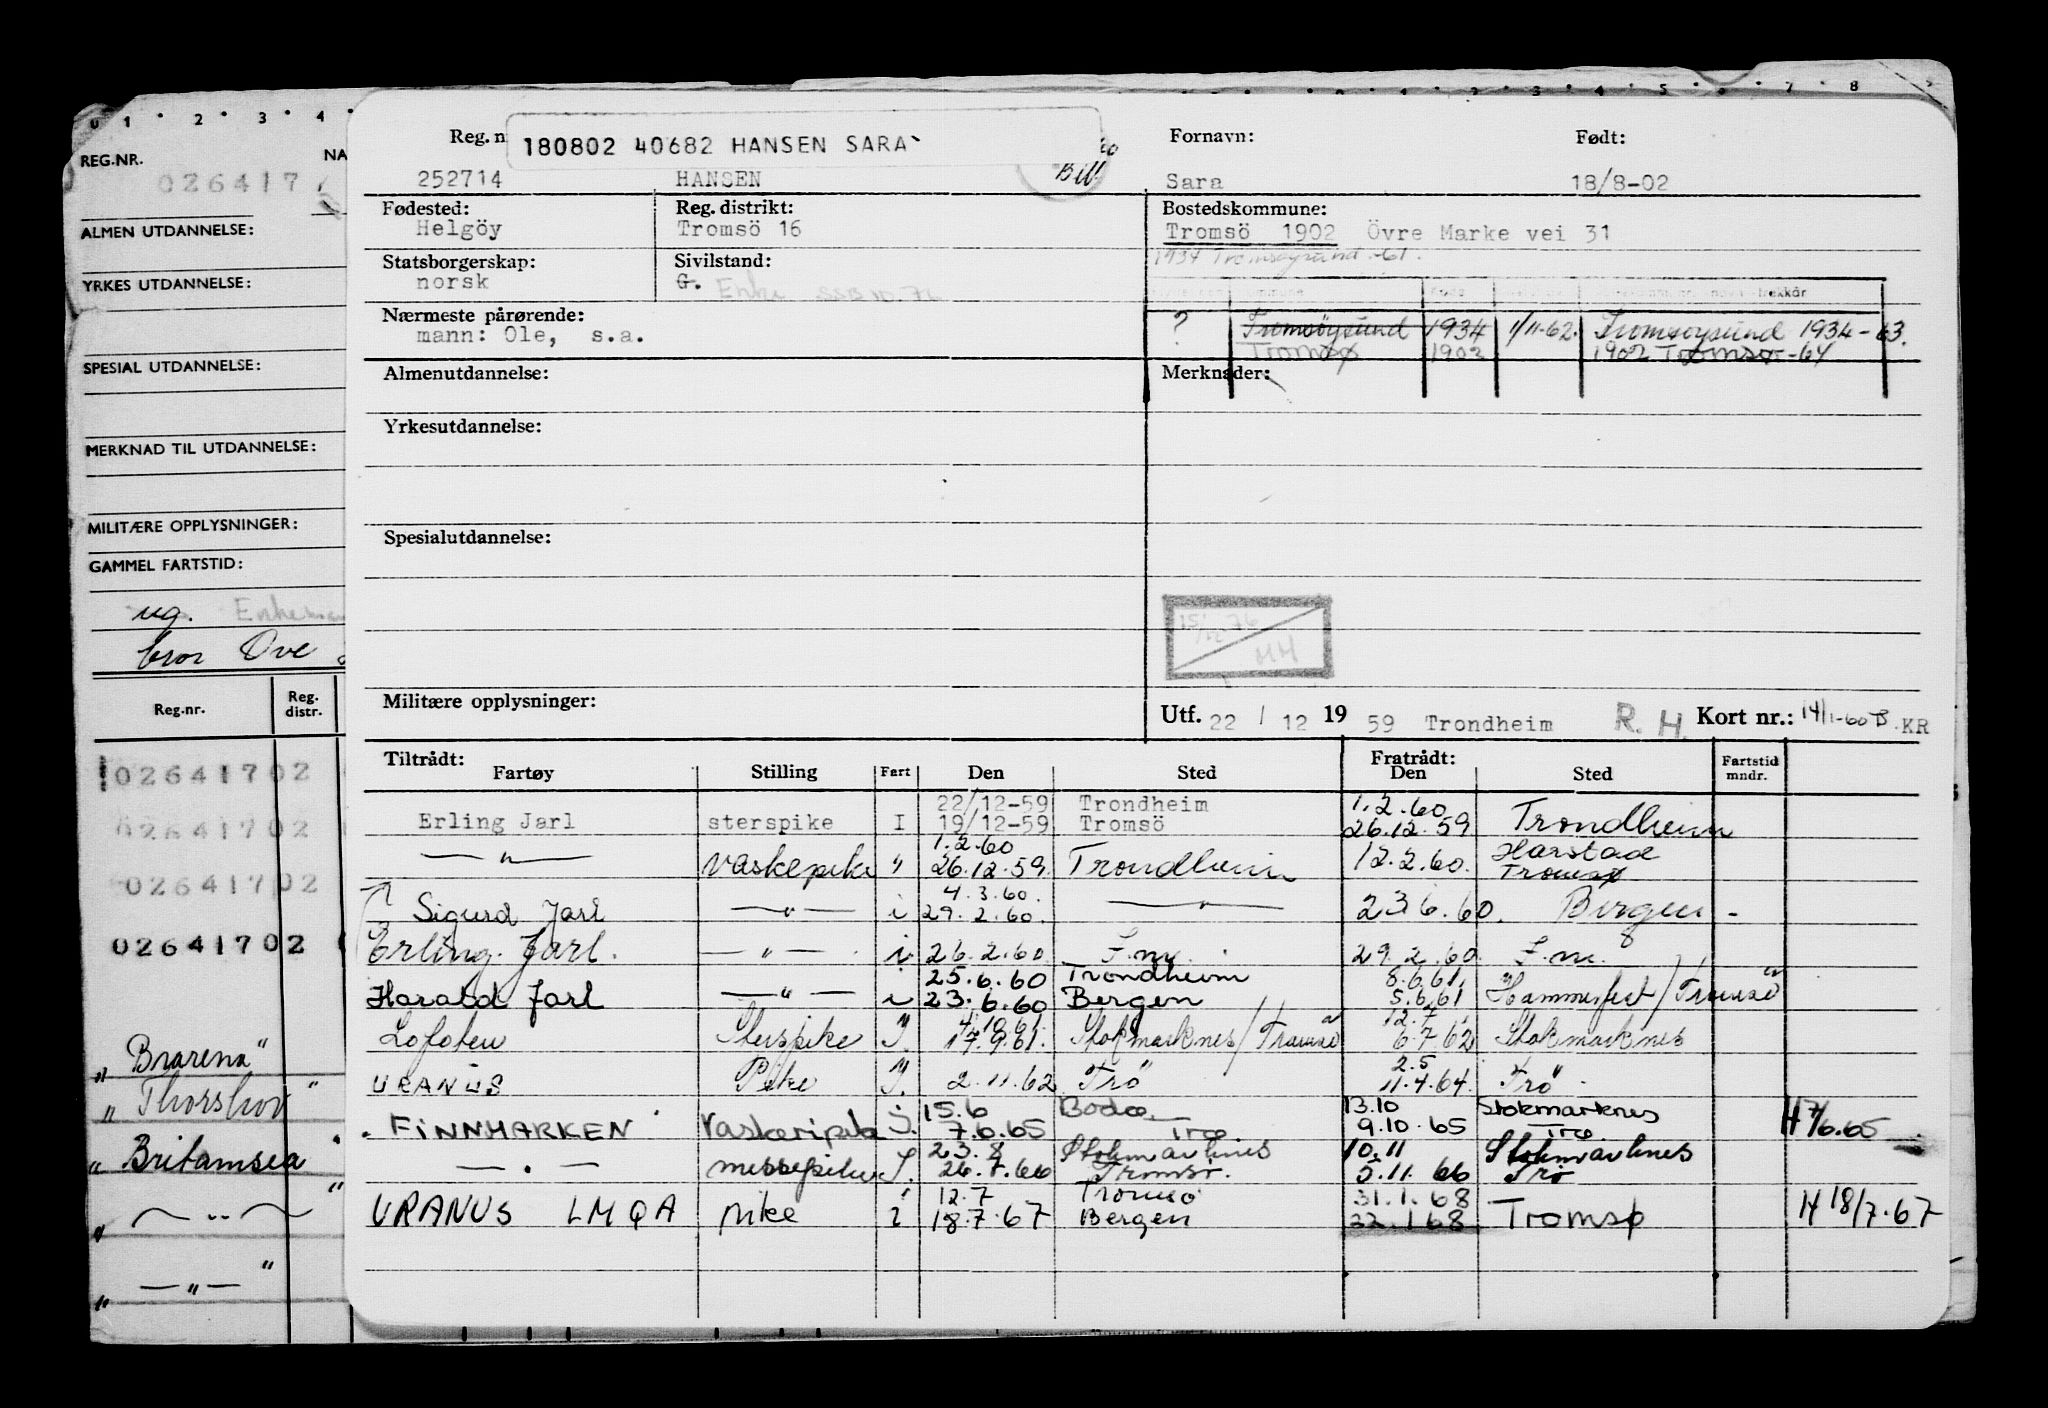 REG.NR. NA
026417
ALMEN UTDANNELSE:
YRKES UTDANNELSE:
SPESIAL UTDANNELSE:
MERKNAD TIL UTDANNELSE:
MILITÆRE OPPLYSNINGER:
GAMMEL FARTSTID:
ug.
bror Ove
Reg.nr. Reg. distr.
02641702
02641702
02641702
02641702
„ Brarena"
„ Thorshov "
„ Britamsea
„ — " — "
„ — " — "
Reg.n
180802 40682 HANSEN SARA
Fornavn: Født:
252714 HANSEN Sara 18/8-02
Fødested: Reg. distrikt: Bostedskommune:
Helgöy Tromsö 16 Tromsö 1902 Övre Marke vei 31
1934 Tromsøysund -61.
Statsborgerskap: Sivilstand:
norsk G. Enke SSB 10.76
Nærmeste pårørende:
mann: Ole, s.a.
? Tromsøysund 1934 1/11-62. Tromsøysund 1934-63.
Tromsø 1902 1902 Tromsø-64
Almenutdannelse: Merknader:
Yrkesutdannelse:
Spesialutdannelse:
15/12 76
HH
Militære opplysninger:
Utf. 22 / 12 19 59 Trondheim R.H. Kort nr.: 14/1-60 B. KR
Tiltrådt: Fratrådt:
Fartøy Stilling Fart Den Sted Den Sted Fartstid mndr.
22/12-59 Trondheim 1.2.60
Erling Jarl sterspike I 19/12-59 Tromsö 26.12.59 Trondheim
1.2.60 Harstad
— " — vaskepike " 26.12.59 Trondheim 12.2.60. Tromsø
4.3.60.
Sigurd Jarl — " — i 29.2.60. — " — 23.6.60. Bergen -
Erling Jarl. — " — i 26.2.60 F.m. 29.2.60 F.m.
25.6.60 Trondheim 8.6.61.
Harald Jarl — " — i 23.6.60 Bergen 5.6.61 Hammerfest/Tromsø
4.10.61. 12.7.
Lofoten Sterspike I. 17.9.61. Stokmarknes/Tromsø 6.7.62 Stokmarknes
2.5
URANUS Pike I. 2.11.62 Trö 11.4.64. Trö
15.6 Bodø 13.10 Stokmarknes
FINNMARKEN Vaskeripike I. 7.6.65 Trø 9.10.65 Trø H 7/6.65
23.8 Stokmarknes 10.11 Stokmarknes
— " — messepike I. 26.7.66 Tromsø. 5.11.66 Trø
12.7 Tromsø 31.1.68
URANUS LMQA pike i 18.7.67 Bergen 22.1.68 Tromsø H 18/7.67